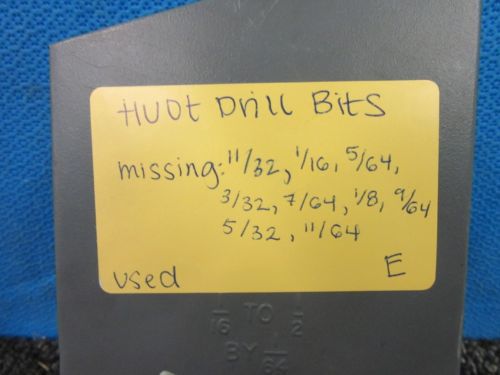 HUOt Drill Bits
missing: 11/32, 1/16, 5/64,
3/32, 7/64, 1/8, 9/64
5/32, 11/64
used E
1/16 TO 1/2
BY 1/64